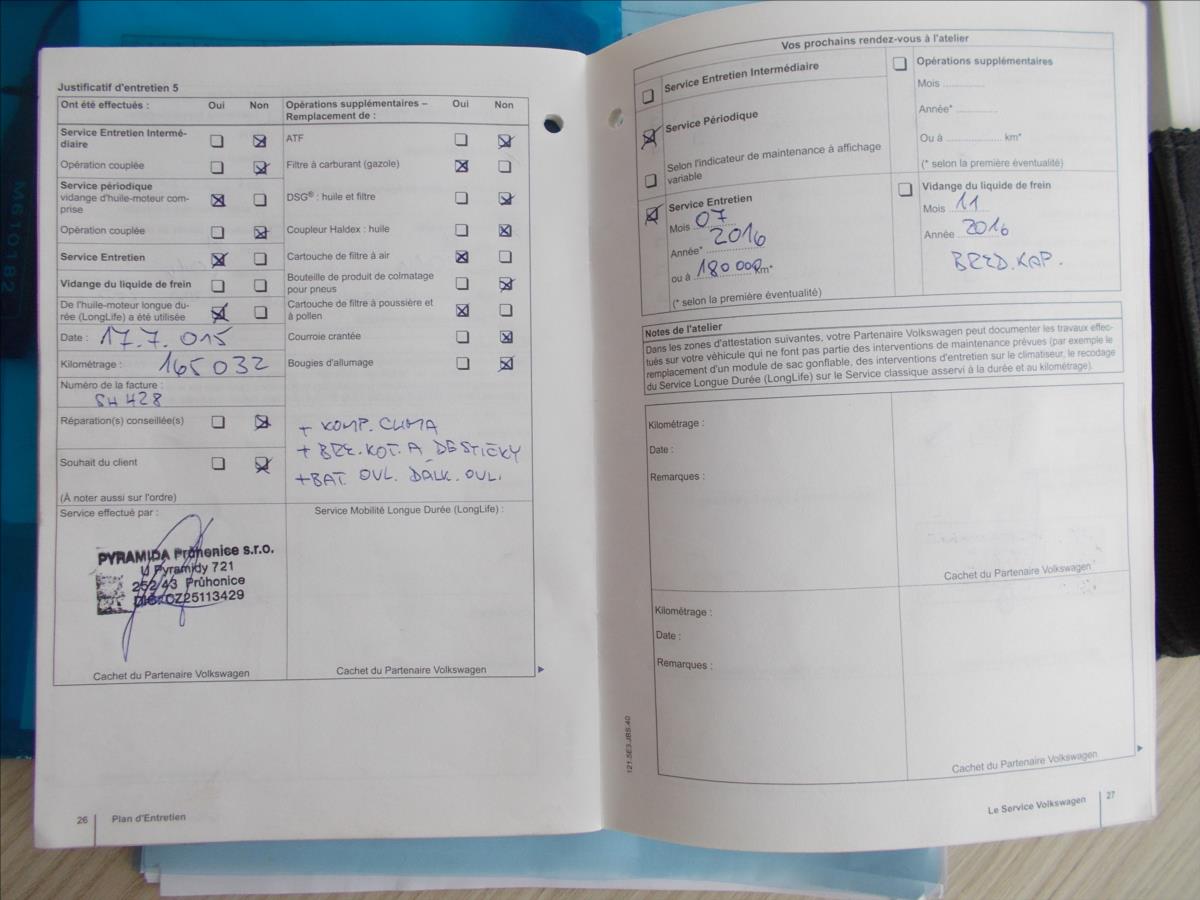 Justificatif d'entretien 5
Ont été effectués : Oui Non
Service Entretien Intermé-
diaire
Opération couplée
Service périodique
vidange d'huile-moteur com-
prise
Opération couplée
Service Entretien
Vidange du liquide de frein
De l'huile-moteur longue du-
rée (LongLife) a été utilisée
Date : 17.7.015
Kilométrage : 165 032
Numéro de la facture :
SH 428
Réparation(s) conseillée(s)
Souhait du client
(À noter aussi sur l'ordre)
Service effectué par :
PYRAMIDA Průhonice s.r.o.
U Pyramidy 721
252 43 Průhonice
DIČ: CZ25113429
Cachet du Partenaire Volkswagen
Opérations supplémentaires –
Remplacement de : Oui Non
ATF
Filtre à carburant (gazole)
DSG® : huile et filtre
Coupleur Haldex : huile
Cartouche de filtre à air
Bouteille de produit de colmatage
pour pneus
Cartouche de filtre à poussière et
à pollen
Courroie crantée
Bougies d'allumage
+ KOMP. CLIMA
+ BRZ. KOT. A DESTIČKY
+ BAT. OVL. DALK. OVL.
Service Mobilité Longue Durée (LongLife) :
Cachet du Partenaire Volkswagen
26 Plan d'Entretien
Vos prochains rendez-vous à l'atelier
Service Entretien Intermédiaire
Service Périodique
Selon l'indicateur de maintenance à affichage
variable
Service Entretien
Mois 07
Année* 2016
ou à 180 000 km*
(* selon la première éventualité)
Opérations supplémentaires
Mois
Année*
Ou à km*
(* selon la première éventualité)
Vidange du liquide de frein
Mois 11
Année 2016
BRZD. KAP.
Notes de l'atelier
Dans les zones d'attestation suivantes, votre Partenaire Volkswagen peut documenter les travaux effec-
tués sur votre véhicule qui ne font pas partie des interventions de maintenance prévues (par exemple le
remplacement d'un module de sac gonflable, des interventions d'entretien sur le climatiseur, le recodage
du Service Longue Durée (LongLife) sur le Service classique asservi à la durée et au kilométrage).
Kilométrage :
Date :
Remarques :
Cachet du Partenaire Volkswagen
Kilométrage :
Date :
Remarques :
Cachet du Partenaire Volkswagen
121.5E3.JBS.40
Le Service Volkswagen 27
M610182